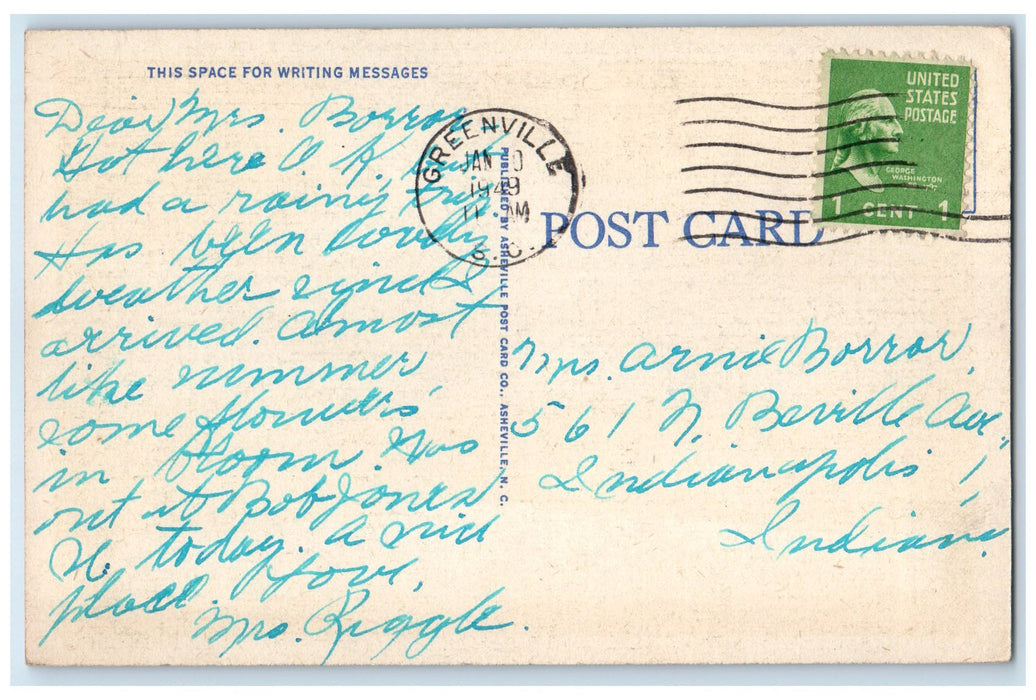 THIS SPACE FOR WRITING MESSAGES
Dear Mrs. Borror
Got here O.K. but
had a rainy trip.
Has been lovely
weather since I
arrived. Almost
like summer,
some flowers
in bloom. Was
out to Bob Jones
U. today. A nice
place. Love,
Mrs. Riggle.
PUBLISHED BY ASHEVILLE POST CARD CO., ASHEVILLE, N. C.
GREENVILLE
JAN
1949
11 AM
S.C.
UNITED
STATES
POSTAGE
GEORGE
WASHINGTON
1 CENT 1
POST CARD
Mrs. Arnie Borror,
561 N. Beville Ave.,
Indianapolis,
Indiana